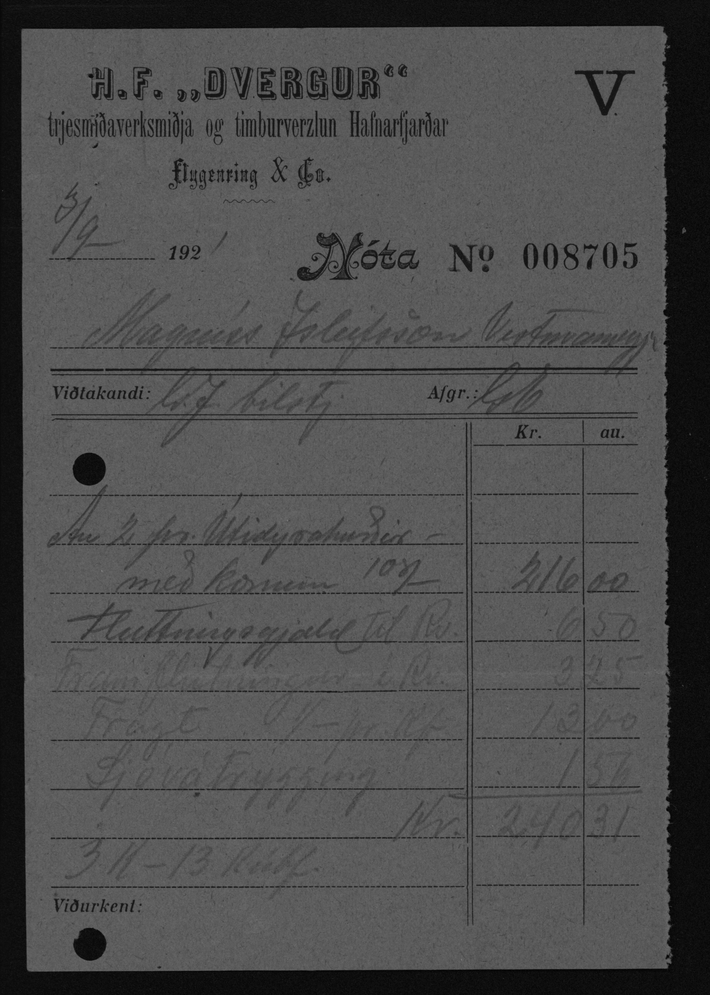 H.F. „DVERGUR“
V
trjesmiðaverksmiðja og timburverzlun Hafnarfjarðar
Flygenring & Co.
3/9 1921
Nóta No 008705
Magnús Ísleifsson Vestmannaeyjr
Viðtakandi: bilstj. Afgr.:
Kr. au.
An 2 pr. Útidyrahurðir -
með körmum 108/- 216 00
Flutningsgjald til Rv. 6 50
Framflutningur í Rv. 3 25
Fragt 1/- pr. Kf. 13 00
Sjóvátrygging 1 56
Kr. 240 31
3 K - 13 Kubf.
Viðurkent: